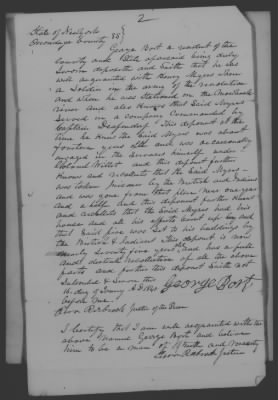 2
State of New York
Onondaga County } SS
George Bort a resident of the
County and State aforesaid being duly
Sworn deposeth and saith that he was
well acquainted with Henry Myers when
a Soldier in the army of the revolution
and when he was stationed on the Mohawk
river and also knows that said Myers
Served in a company Commanded by
Captain this deponent at the
time he knew the said Myers was about
fourteen years old and was occasionally
engaged in the service himself under
Colonel Willet and this deponent further
knows and recollects that the said Myers
was taken prisoner by the British and Indians
and was gone from that place near one year
and a half and this deponent further knows
and recollects that the said Myers had his
house and all his effects burnt up by and
that said fire was set to his buildings by
the British & Indians this deponent is now
nearly seventy five years old and has a full
and distinct recollection of all the above
facts and further this deponent saith not
Subscribed & Sworn the
16 day of A D 18 George Bort
before me
Justice of the Peace
I Certify that I am well acquainted with the
above named George Bort and believe
him to be a man of truth and veracity
Justice